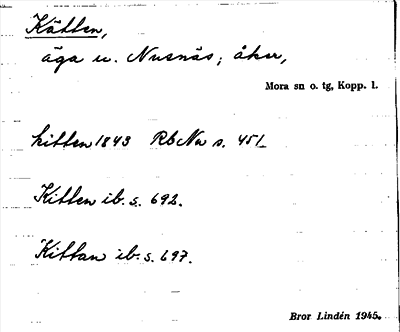 Kätten,
äga u. Nusnäs; åker,
Mora sn o. tg, Kopp. l.
kitten 1843 Rb Nu s. 451
Kitten ib. s. 692.
Kittan ib. s. 697.
Bror Lindén 1945.